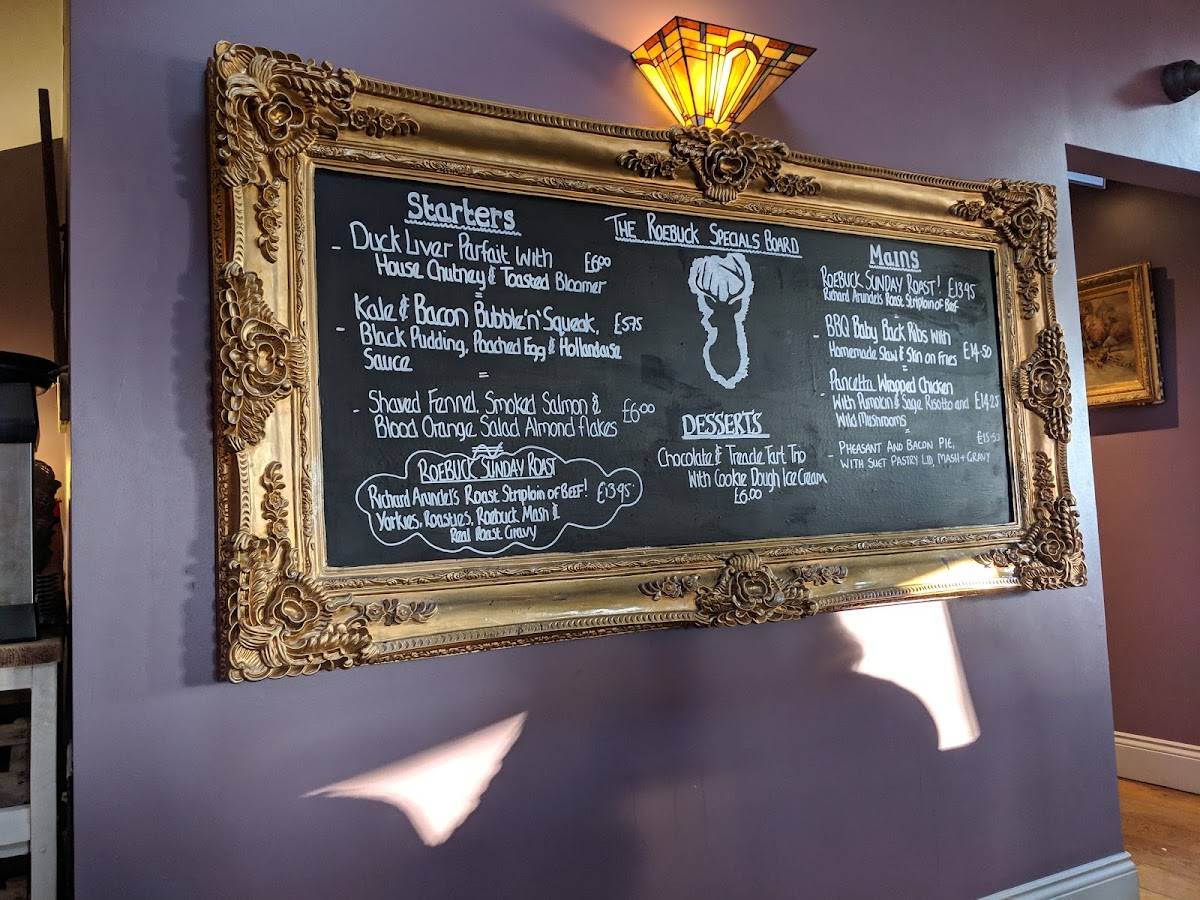 Starters
- Duck Liver Parfait With £6.00
House Chutney & Toasted Bloomer
=
- Kale & Bacon Bubble 'n' Squeak, £5.75
Black Pudding, Poached Egg & Hollandaise
Sauce
=
- Shaved Fennel, Smoked Salmon & £6.00
Blood Orange Salad Almond flakes
ROEBUCK SUNDAY ROAST
Richard Arundel's Roast Striploin of BEEF! £13.95
Yorkies, Roasties, Roebuck Mash &
Real Roast Gravy
THE ROEBUCK SPECIALS BOARD
DESSERTS
Chocolate & Treacle Tart Trio
With Cookie Dough Ice Cream
£6.00
Mains
ROEBUCK SUNDAY ROAST! £13.95
Richard Arundel's Roast Striploin of BEEF
-
- BBQ Baby Back Ribs with
Homemade Slaw & Skin on Fries £14.50
=
- Pancetta Wrapped Chicken
With Pumpkin & Sage Risotto and £14.25
Wild Mushrooms
=
- PHEASANT AND BACON PIE, £15.50
WITH SUET PASTRY LID, MASH + GRAVY